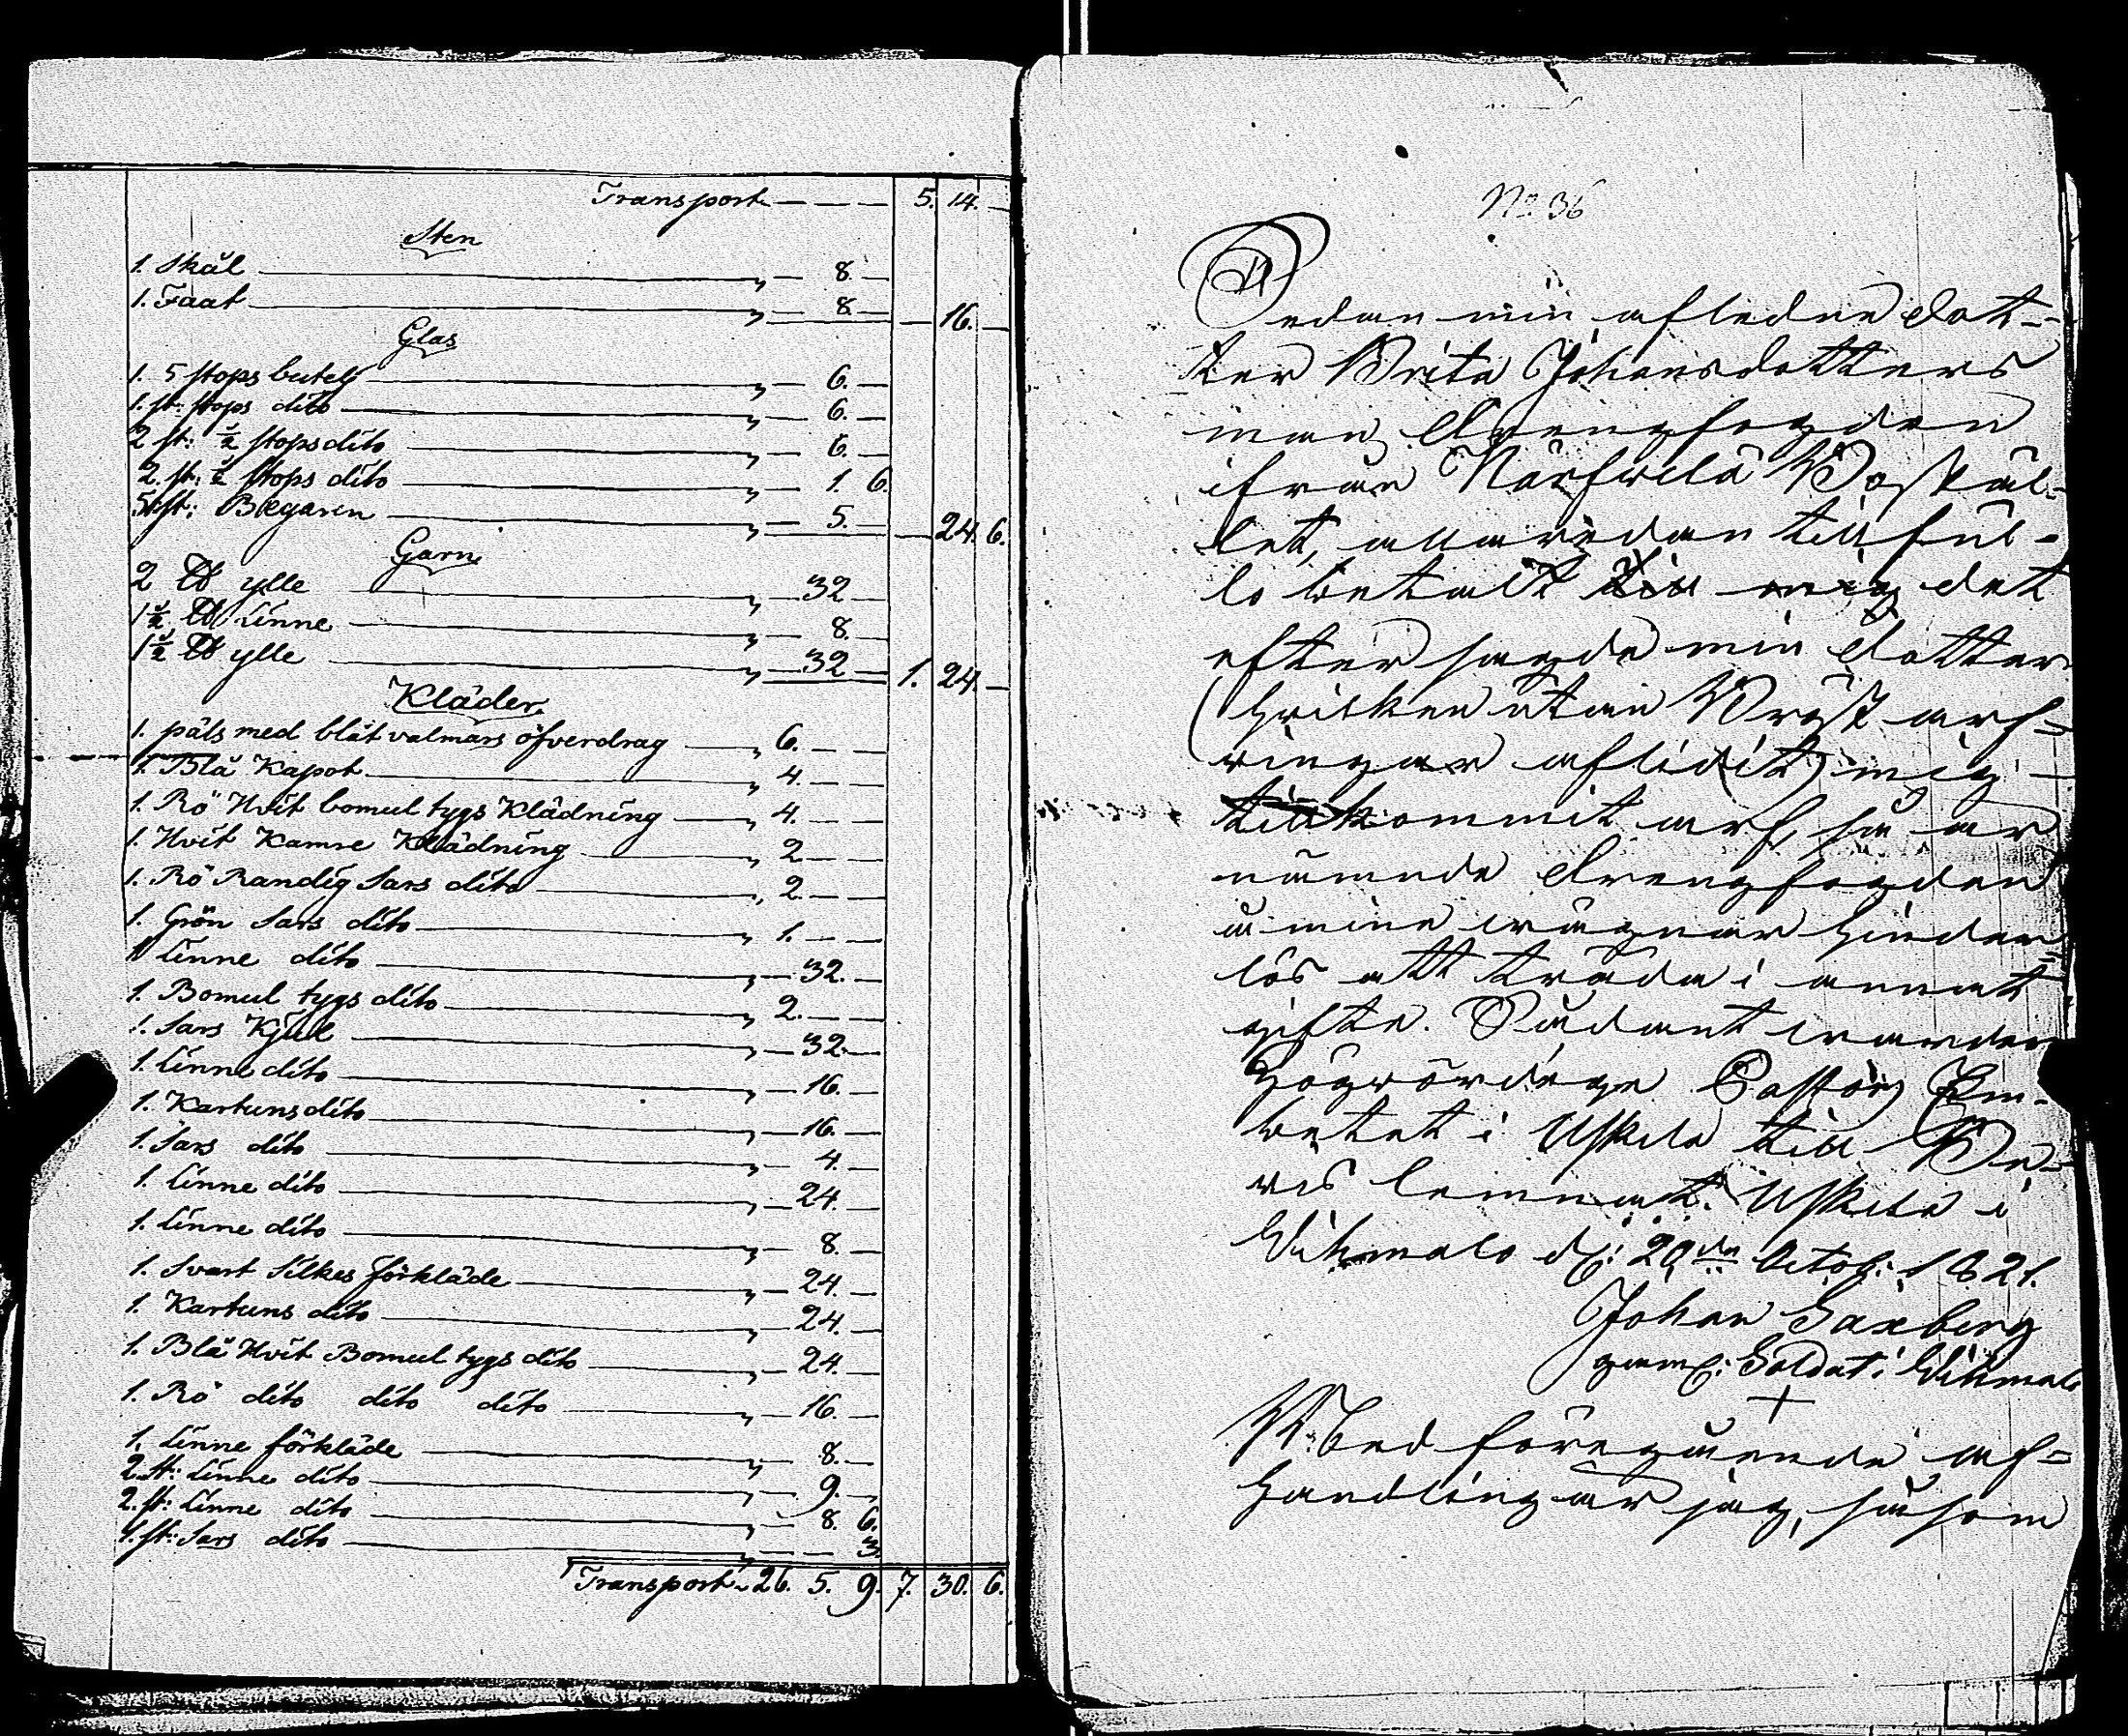 Transport — — — 5. 14. —
Sten
1. Skål — 8. —
1. Faat — 8. — — 16. —
Glas
1. 5 stops butelj — 6. —
1. st: stops dito — 6. —
2 st: ½ stops dito — 6. —
2. st: stops dito — 1. 6.
5 st: Bægaren — 5. — — 24. 6.
Garn
2 ℔ ylle — 32 —
1½ ℔ Linne — 8. —
1½ ℔ ylle — 32 — 1. 24. —
Kläder
1. päls med blåt valmars öfverdrag — 6. — —
1. Blå Kapot — 4. — —
1. Rö Hvit bomul tygs Klädning — 4. — —
1. Hvit Kamre Klädning — 2 — —
1. Rö Randig Sars dito — 2. — —
1. Grön Sars dito — 1. — —
1 Linne dito — 32. —
1. Bomul tygs dito — 2. — —
1. Sars Kjul — 32. —
1. Linne dito — 16. —
1. Kartuns dito — 16. —
1. Sars dito — 4. —
1. Linne dito — 24. —
1. Linne dito — 8. —
1. Svart Silkes förkläde — 24. —
1. Kartuns dito — 24. —
1. Blå Hvit Bomul tygs dito — 24. —
1. Rö dito dito dito — 16. —
1. Linne förkläde — 8. —
2. st: Linne dito — 9. —
2. st: Linne dito — 8. 6.
1. st: Sars dito — — 3.
Transport 26. 5. 9. 7. 30. 6.
No 36
Sedan min afledne dot-
ter Brita Johansdotters
man Drengfogden
ifrån Närfvelä Bostäl-
let, allaredan till ful-
lo betalt till mig det
efter sagde min dotter
(hvilken utan Bröst arf-
vingar aflidit) mig
tillkommit arf, så är
nämnde Drengfogden
å mine vägnar hinder-
lös att träda i annat
gifte. Sådant varder
Högvördige Pastors Em-
betet i Uskela till Be-
vis lemnat. Uskela i
Vihmalo d: 29de Octob: 1821.
Johan Saxberg
gaml: Soldat i Vihmalo
+
Med föregående af-
handling är jag, såsom